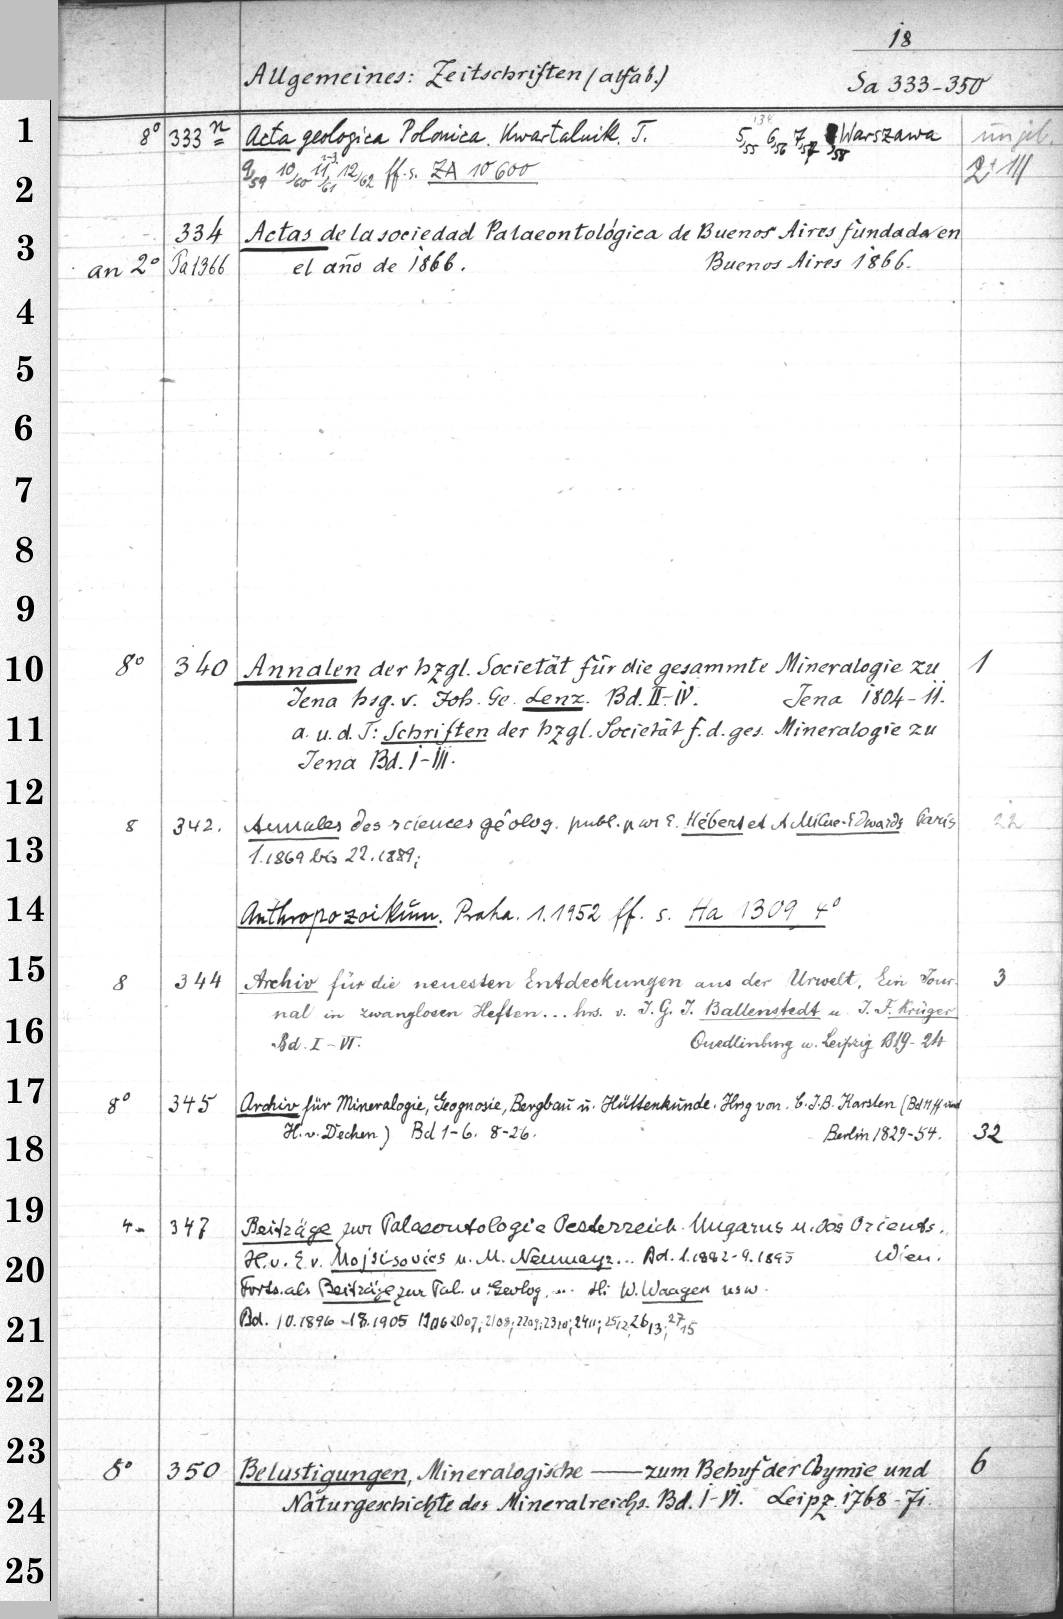 18
Allgemeines: Zeitschriften (alfab.) Sa 333-350
1 8° 333 n Acta geologica Polonica. Kwartalnik. T. 5/55 6/56 7/57 8/58 Warszawa ungeb.
9/59 10/60 11/61 12/62 ff. s. ZA 10 600
2
334 Actas de la sociedad Palaeontológica de Buenos Aires fundada en
3
an 2° Pa 1366 el año de 1866. Buenos Aires 1866.
4
5
6
7
8
9
10 8° 340 Annalen der hzgl. Societät für die gesammte Mineralogie zu 1
Jena hsg. v. Joh. Ge. Lenz. Bd. II-IV. Jena 1804-11.
11 a. u. d. T: Schriften der hzgl. Societät f. d. ges. Mineralogie zu
Jena Bd. I-III.
12
8 342. Annales des sciences géolog. publ. par E. Hébert et A Milne-Edwards Paris 22
13 1.1869 bis 22.1889;
14 Anthropozoikum. Praha. 1.1952 ff. s. Ha 1309 4°
15 8 344 Archiv für die neuesten Entdeckungen aus der Urwelt. Ein Jour- 3
nal in zwanglosen Heften... hrs. v. J. G. J. Ballenstedt u. J. F. Krüger
16 Bd. I-VI. Quedlinburg u. Leipzig 1819-24
17 8° 345 Archiv für Mineralogie, Geognosie, Bergbau u. Hüttenkunde. Hrsg von C. J. B. Karsten (Bd 11 ff und
18 H. v. Dechen) Bd 1-6. 8-26. Berlin 1829-54. 32
19 4- 347 Beiträge zur Palaeontologie Oesterreich-Ungarns u. des Orients.
20 H. v. E. v. Mojsisovics u. M. Neumayr... Bd. 1.1882-9.1895 Wien.
Forts. als Beiträge zur Pal. u. Geolog. ... W. Waagen usw.
21 Bd. 10.1896-18.1905 1906 2007; 2108; 2209; 2310; 2411; 2512 26 13; 27 15
22
23 8° 350 Belustigungen, Mineralogische —— zum Behuf der Chymie und 6
24 Naturgeschichte des Mineralreichs. Bd. I-VI. Leipz. 1768-71.
25